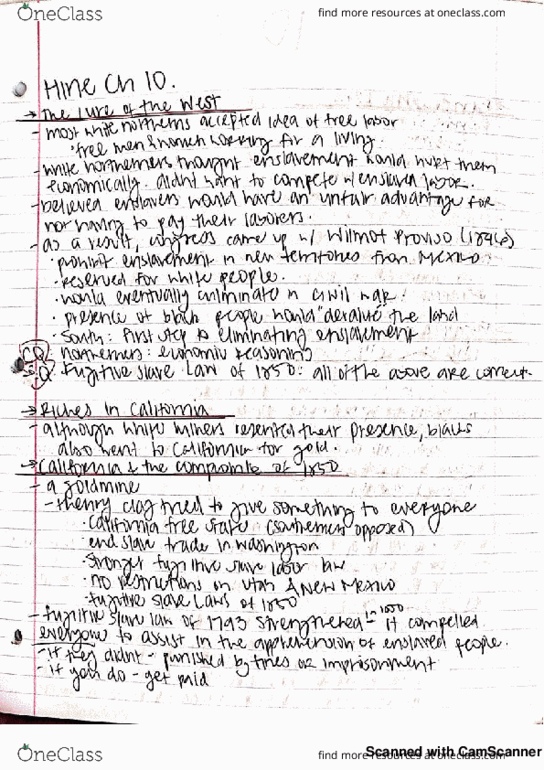 OneClass
find more resources at oneclass.com
Hine Ch 10.
→ The Lure of the West
- most white northerns accepted idea of free labor
• free men & women working for a living.
- white northerners thought enslavement would hurt them
economically. didnt want to compete w/ enslaved labor.
- believed enslavers would have an unfair advantage for
not having to pay their laborers.
- as a result, congress came up w/ Wilmot Proviso (1846)
• prohibit enslavement in new territories from Mexico
• reserved for white people.
• would eventually culminate in civil war!
• presence of black people would "devalue the land
• South: First step to eliminating enslavement
CQ • northerners: economic reasoning
Q • Fugitive Slave Law of 1850: all of the above are correct.
→ Riches in California
- although white miners resented their presence, blacks
also went to California for gold.
→ California & the compromise of 1850
- a goldmine
- Henry clay tried to give something to everyone
• California free state (southerners opposed)
• end slave trade in washington
• Stronger fugitive slave labor law
• no restrictions on Utah & New Mexico
• Fugitive Slave Laws of 1850
- fugitive slave law of 1793 strengthened in 1850 - it compelled
everyone to assist in the apprehension of enslaved people.
- if they didnt - punished by fines or imprisonment
- if you do - get paid
Scanned with CamScanner
OneClass
find more resources at oneclass.com